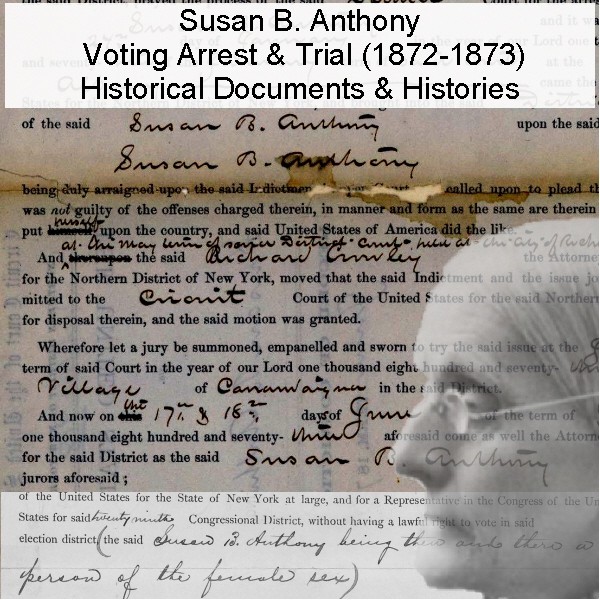 Susan B. Anthony
Voting Arrest & Trial (1872-1873)
Historical Documents & Histories
of the said Susan B. Anthony upon the said
Susan B. Anthony
being duly arraigned upon the said Indictment Court called upon to plead th
was not guilty of the offenses charged therein, in manner and form as the same are therein
herself
put himself upon the country, and said United States of America did the like.
at the May term of said District Court, held at the city of Roche
And thereupon the said Richard Crowley the Attorne
for the Northern District of New York, moved that the said Indictment and the issue jo
mitted to the Circuit Court of the United States for the said Northern
for disposal therein, and the said motion was granted.
Wherefore let a jury be summoned, empanelled and sworn to try the said issue at the
term of said Court in the year of our Lord one thousand eight hundred and seventy-
Village of Canandaigua in the said District.
And now on the 17th & 18th days of June of the term of
one thousand eight hundred and seventy- three aforesaid come as well the Attorne
for the said District as the said Susan B. Anthony
jurors aforesaid;
of the United States for the State of New York at large, and for a Representative in the Congress of the Un
States for said twenty ninth Congressional District, without having a lawful right to vote in said
election district (the said Susan B. Anthony being then and there a
person of the female sex)